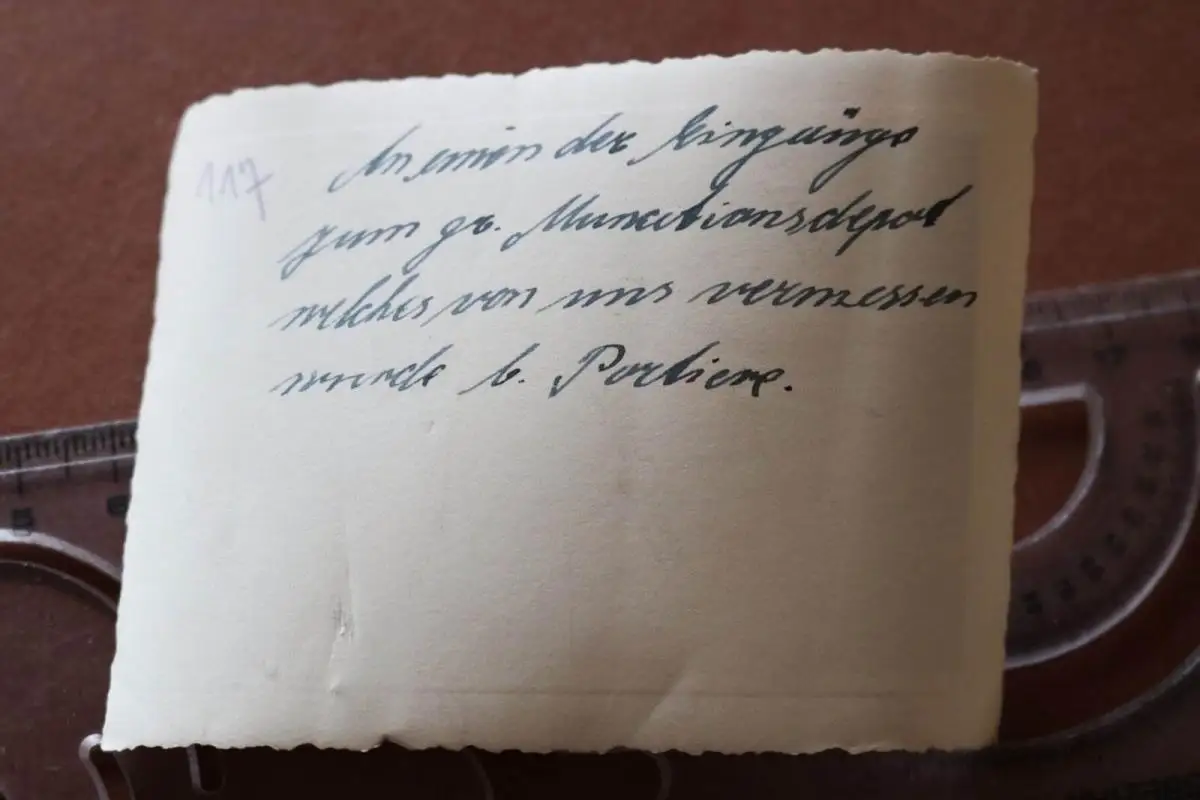 117
An einen der Eingänge
zum gr. Munitionsdepot
welches von uns vermessen
wurde b.